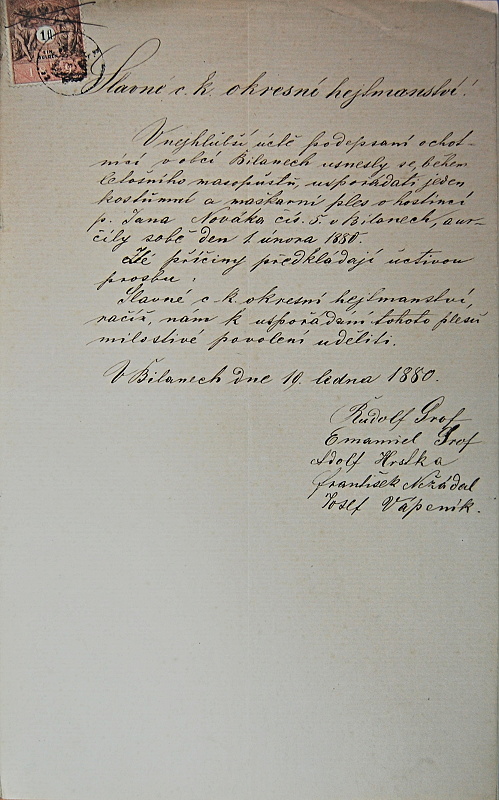 Slavné c. k. okresní hejtmanství!
V nejhlubší úctě podepsaní ochot-
níci v obci Bílanech usnesly se, během
letošního masopustu, uspořádati jeden
kostumní a maškarní ples v hostinci
p. Jana Nováka čís. 5. v Bílanech, a ur-
čily sobě den 1. února 1880.
Zé příčiny předkládají uctivou
prosbu:
Slavné c. k. okresní hejtmanství,
račiž, nám k uspořádání tohoto plesu
milostivé povolení uděliti.
V Bílanech dne 19. ledna 1880.
Rudolf Grof
Emanuel Grof
Adolf Hrstka
František Nežádal
Josef Vápeník.